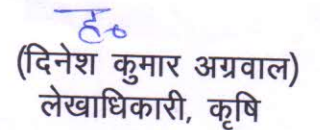 ह०
(दिनेश कुमार अग्रवाल)
लेखाधिकारी, कृषि